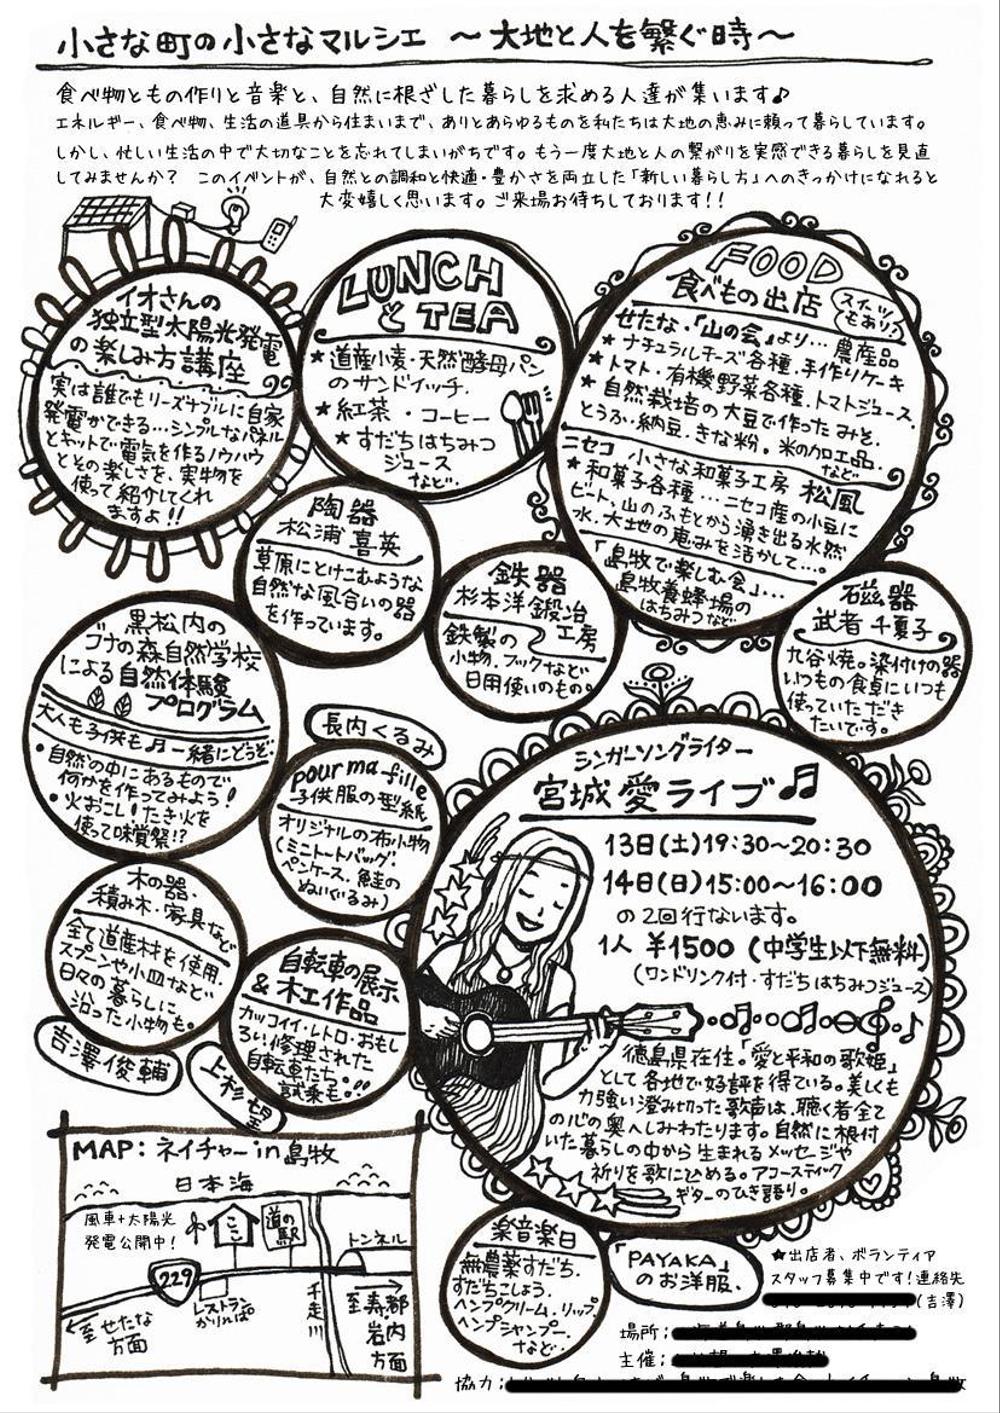 小さな町の小さなマルシェ ～大地と人を繋ぐ時～
食べ物ともの作りと音楽と、自然に根ざした暮らしを求める人達が集います♪
エネルギー、食べ物、生活の道具から住まいまで、ありとあらゆるものを私たちは大地の恵みに頼って暮らしています。
しかし、忙しい生活の中で大切なことを忘れてしまいがちです。もう一度大地と人の繋がりを実感できる暮らしを見直
してみませんか? このイベントが、自然との調和と快適・豊かさを両立した「新しい暮らし方」へのきっかけになれると
大変嬉しく思います。ご来場お待ちしております!!
イオさんの
独立型太陽光発電
の楽しみ方講座
実は誰でもリーズナブルに自家
発電ができる…シンプルなパネル
とキットで電気を作るノウハウ
とその楽しさを、実物を
使って紹介してくれ
ますよ!!
LUNCH
と TEA
★道産小麦・天然酵母パン
のサンドイッチ.
★紅茶・コーヒー
★すだちはちみつ
ジュース
など…
FOOD
食べもの出店
スイーツ
もあり♪
せたな・「山の会」より… 農産品
★ナチュラルチーズ各種.手作りケーキ
★トマト・有機野菜各種.トマトジュース.
★自然栽培の大豆で作ったみそ.
とうふ・納豆.きな粉.米の加工品.
など
ニセコ 小さな和菓子工房 松風
★和菓子各種…ニセコ産の小豆に
ビート.山のふもとから湧き出る水.然
水.大地の恵みを活かして…。
「島牧で楽しむ会」…
島牧養蜂場の
はちみつなど
陶器
松浦喜英
草原にとけこむような
自然な風合いの器
を作っています。
鉄器
杉本洋鍛冶
工房
鉄製の
小物.フックなど
日用使いのもの。
磁器
武者千夏子
九谷焼。染付けの器
いつもの食卓にいつも
使っていただき
たいです。
黒松内の
ブナの森自然学校
による自然体験
プログラム
大人も子供も♪一緒にどうぞ.
・自然の中にあるもので
何かを作ってみよう!
・火おこし!たき火を
使って味覚祭!?
長内くるみ
pour ma fille
子供服の型紙
オリジナルの布小物
(ミニトートバッグ.
ペンケース.鮭の
ぬいぐるみ)
シンガーソングライター
宮城愛ライブ♬
13日(土)19:30～20:30
14日(日)15:00～16:00
の2回行ないます。
1人 ¥1500 (中学生以下無料)
(ワンドリンク付・すだちはちみつジュース)
徳島県在住。「愛と平和の歌姫」
として各地で好評を得ている。美しくも
力強い澄み切った歌声は、聴く者全て
の心の奥へしみわたります。自然に根付
いた暮らしの中から生まれるメッセージや
祈りを歌に込める。アコースティック
ギターのひき語り。
木の器.
積み木・家具など
全て道産材を使用.
スプーンや小皿など
日々の暮らしに
沿った小物も。
吉澤俊輔
自転車の展示
&木工作品
カッコイイ・レトロ・おもし
ろい修理された
自転車たち。
試乗も。!!
上杉 望
MAP: ネイチャーin島牧
日本海
風車+太陽光
発電公開中!
ここ
道の駅
トンネル
229
レストラン
かりんぱ
千走川
至せたな
方面
至寿都
岩内
方面
楽音楽日
無農薬すだち.
すだちこしょう.
ヘンプクリーム.リップ.
ヘンプシャンプー.
など…
「PAYAKA」
のお洋服.
★出店者、ボランティア
スタッフ募集中です!連絡先
(吉澤)
場所:
主催:
協力: